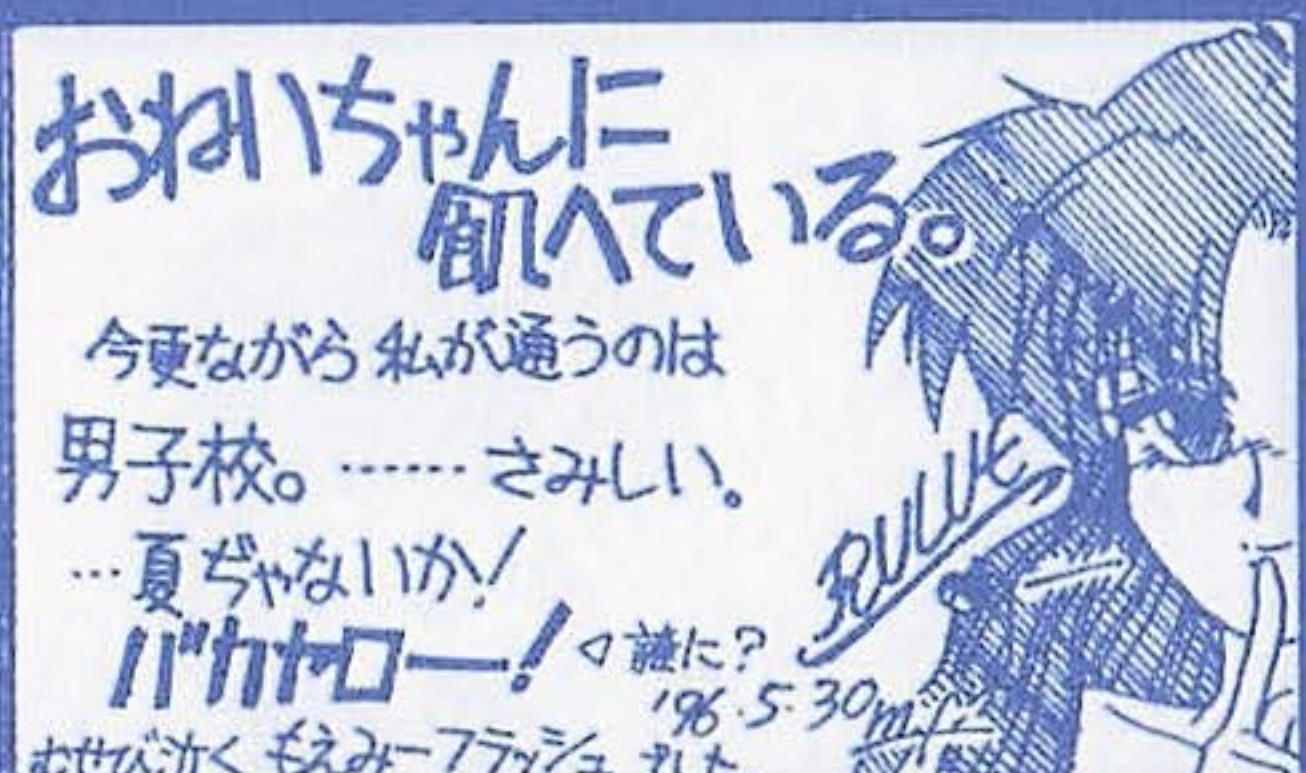 おねいちゃんに
飢へている。
今更ながら 私が通うのは
男子校。……さみしい。
…夏ぢゃないか!
バカヤロー! ◁誰に?
RULUE
'96.5.30
むせび泣く もえみーフラッシュ でした